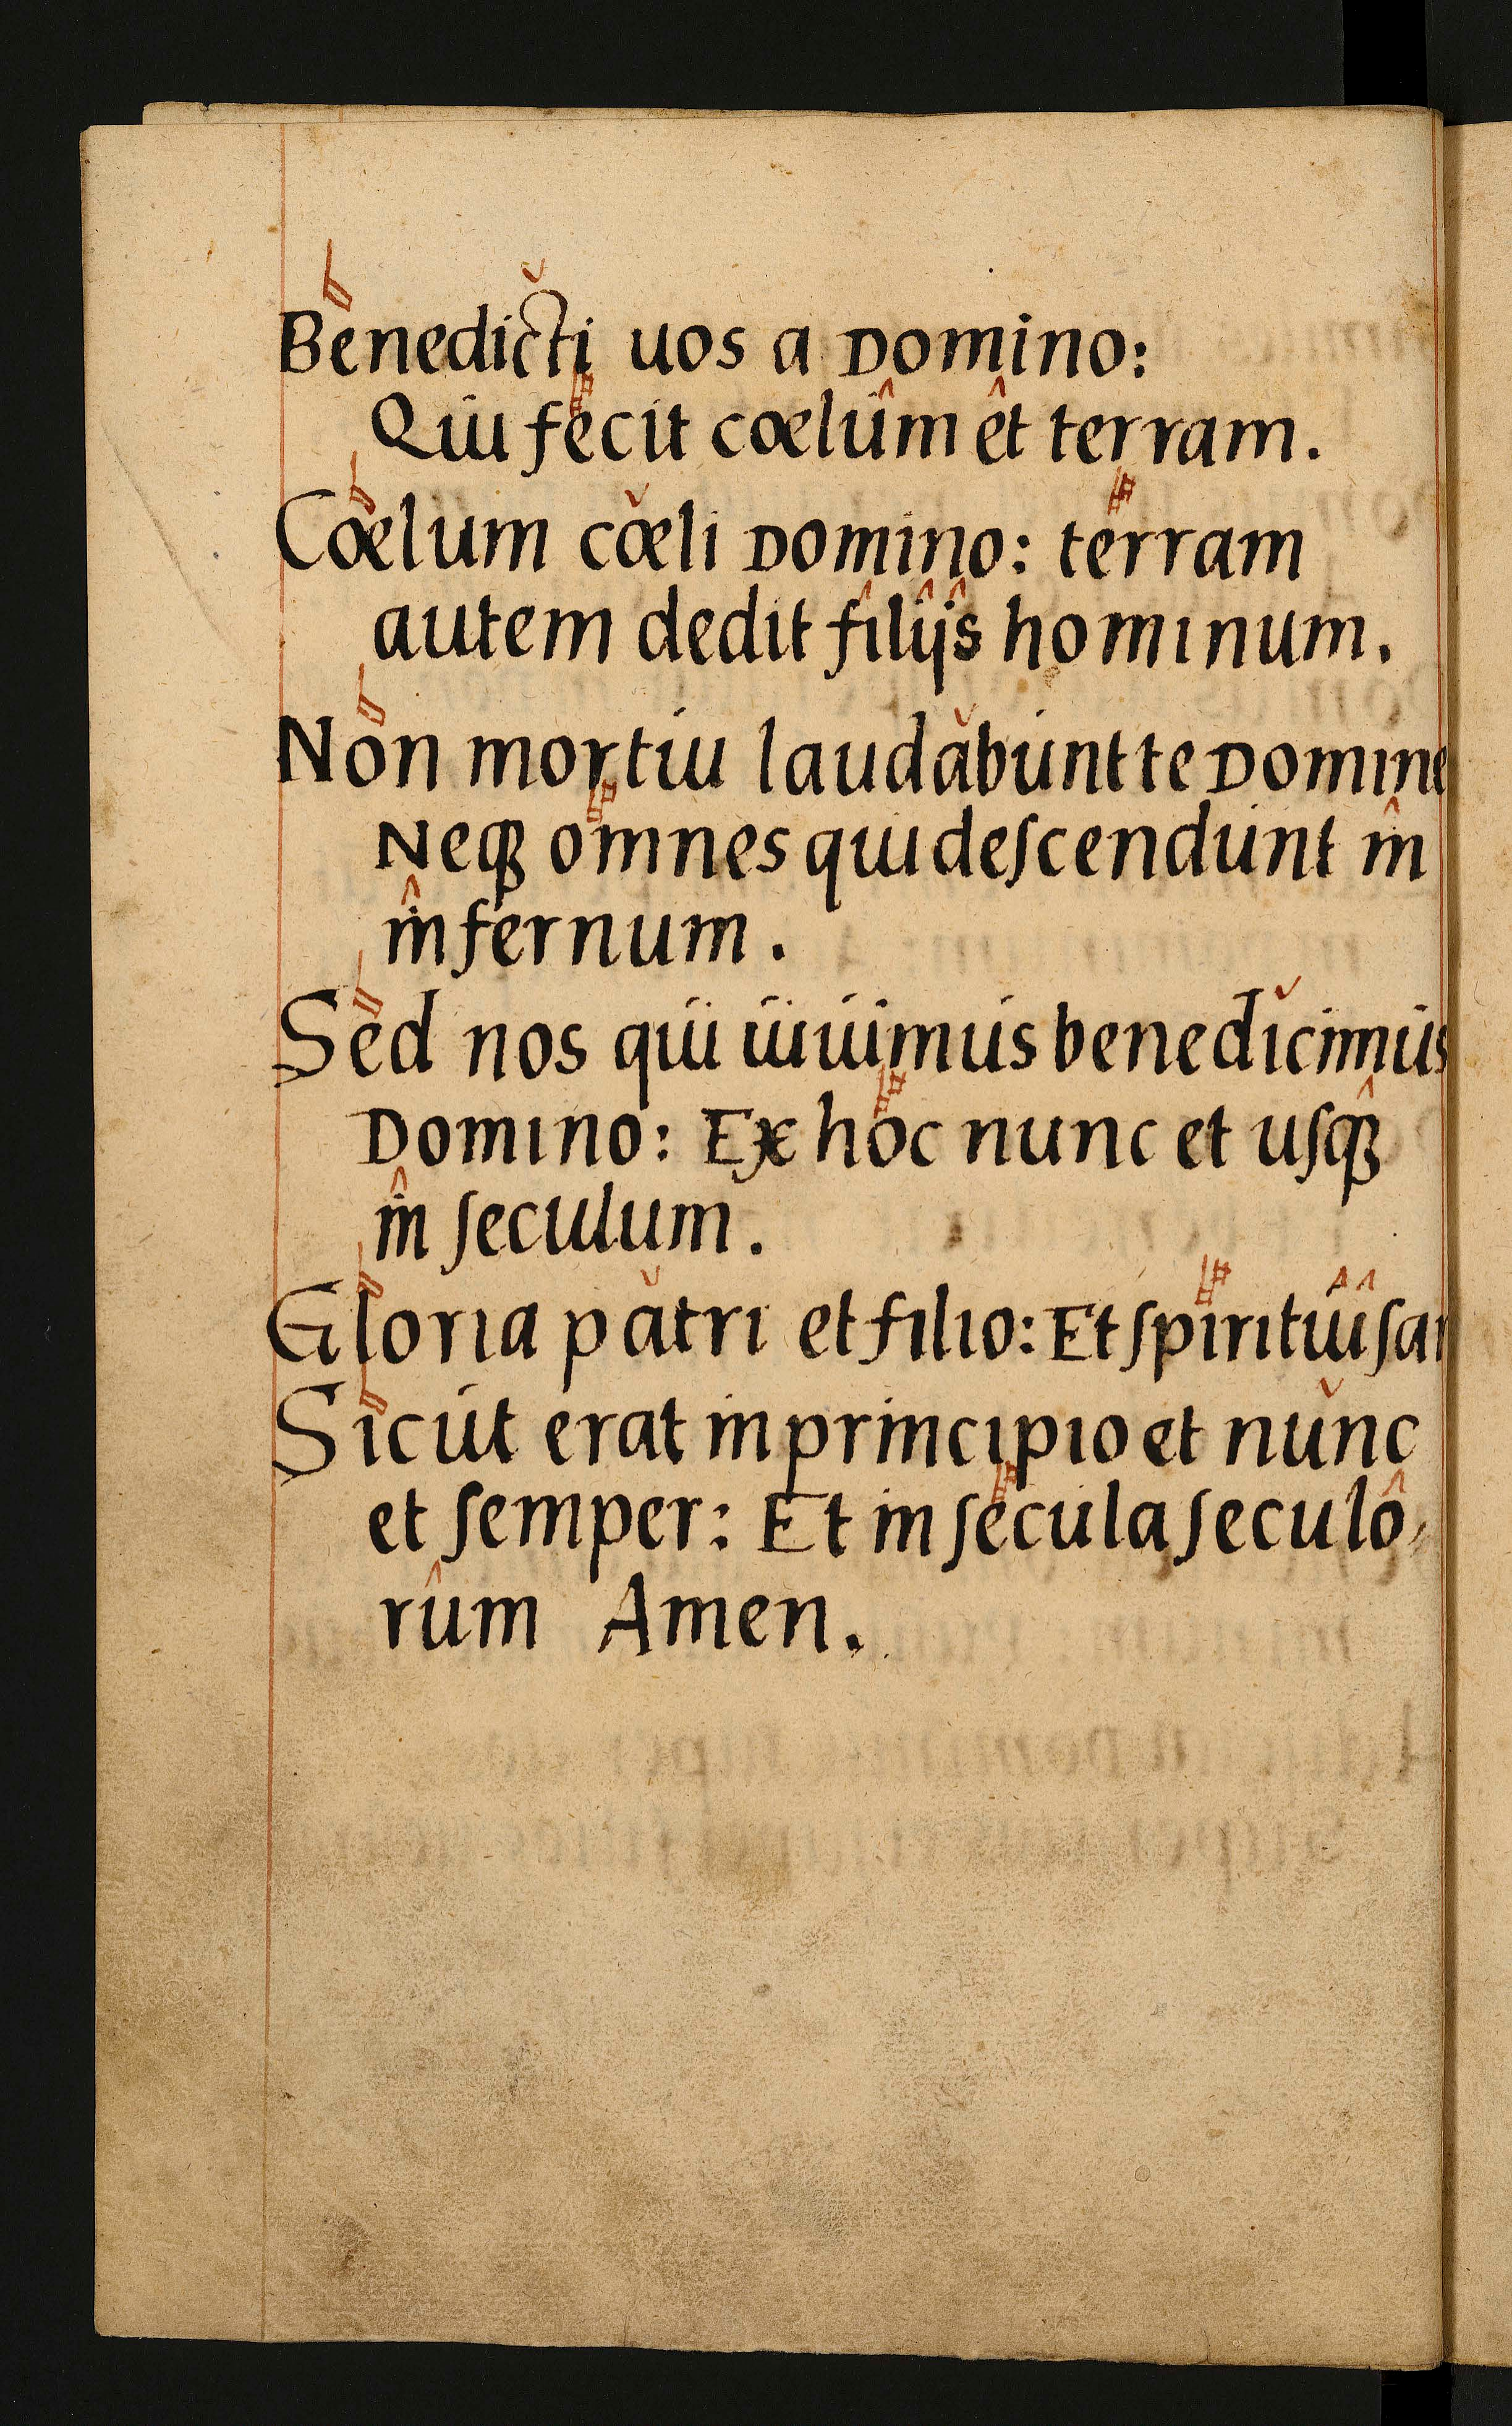 Benedicti uos a Domino:
Qui fecit cœlum et terram.
Cœlum cœli Domino: terram
autem dedit filijs hominum.
Non mortui laudabunt te Domine
Neqȝ omnes qui deſcendunt in
infernum.
Sed nos qui uiuimus benedicimus
Domino: Ex hoc nunc et uſqȝ
in ſeculum.
Gloria patri et filio: Et ſpiritui
Sicut erat in principio et nunc
et ſemper: Et in ſecula ſeculo,
rum Amen.